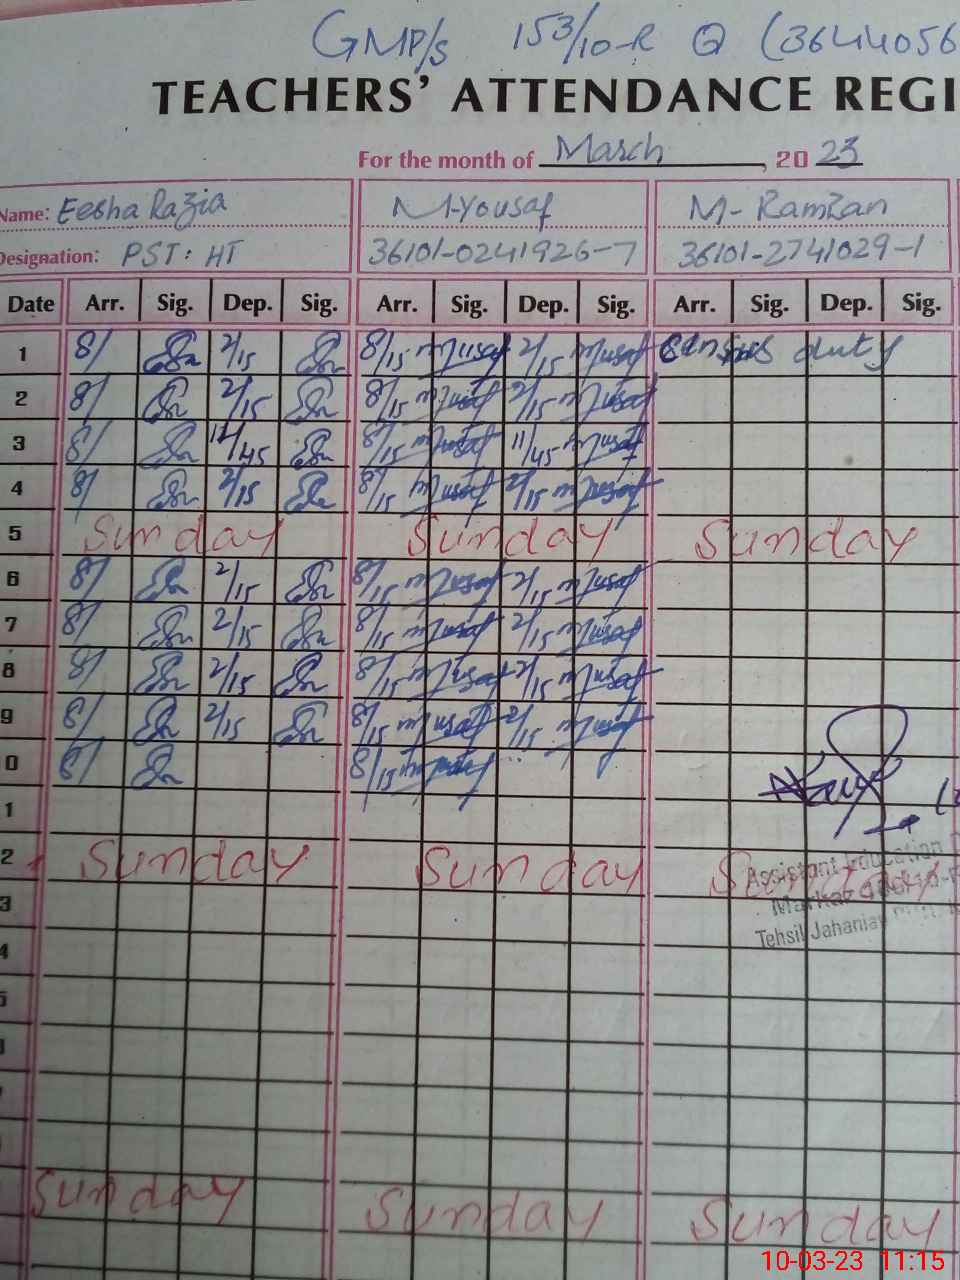 GMP/S 153/10-R Q (3644056
TEACHERS' ATTENDANCE REGI
For the month of March, 2023
Name: Eesha Razia M-Yousaf M-Ramzan
Designation: PST: HT 36101-0241926-7 36101-2741029-1
Date Arr. Sig. Dep. Sig. Arr. Sig. Dep. Sig. Arr. Sig. Dep. Sig.
1 8/ 2/15 8/15 mYusaf 2/15 mYusaf Census duty
2 8/ 2/15 8/15 mYusaf 2/15 mYusaf
3 8/ /45 8/15 mYusaf 11/45 mYusaf
4 8/ 2/15 8/15 mYusaf 2/15 mYusaf
5 Sunday Sunday Sunday
6 8/ 2/15 8/15 mYusaf 2/15 mYusaf
7 8/ 2/15 8/15 mYusaf 2/15 mYusaf
8 8/ 2/15 8/15 mYusaf 2/15 mYusaf
9 8/ 2/15 8/15 mYusaf 2/15 mYusaf
0 8/ 8/15
1
2 Sunday Sunday Sunday
Assistant Education
3 Markaz
Tehsil Jahanian
4
5
Sunday Sunday Sunday
10-03-23 11:15